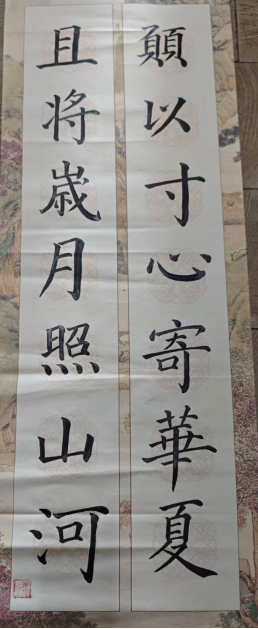 願以寸心寄華夏
且将歳月照山河